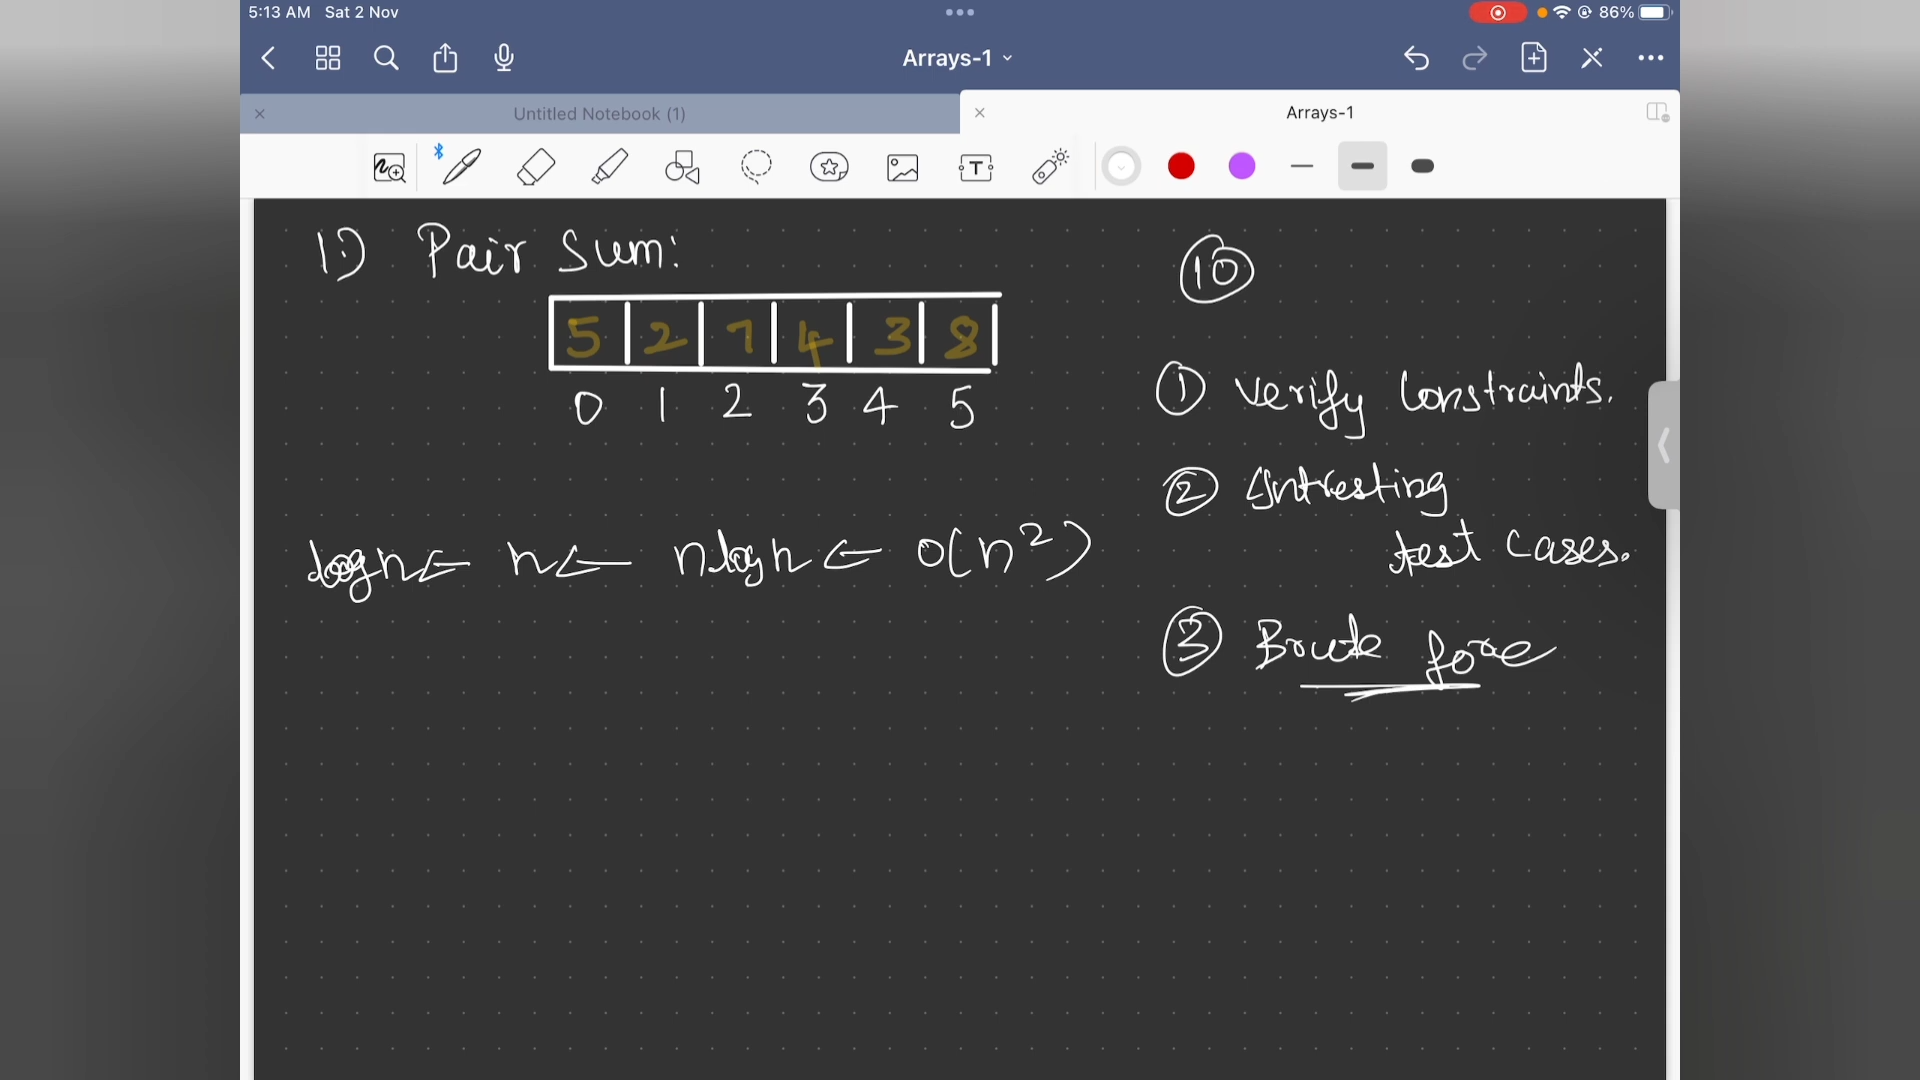 5:13 AM Sat 2 Nov
86%
Arrays-1
Untitled Notebook (1)
Arrays-1
1.) Pair Sum:
10
5 2 7 4 3 8
0 1 2 3 4 5
① Verify Constraints.
② Intresting
test cases.
logn ← n ← nlogn ← O(n²)
③ Brute force